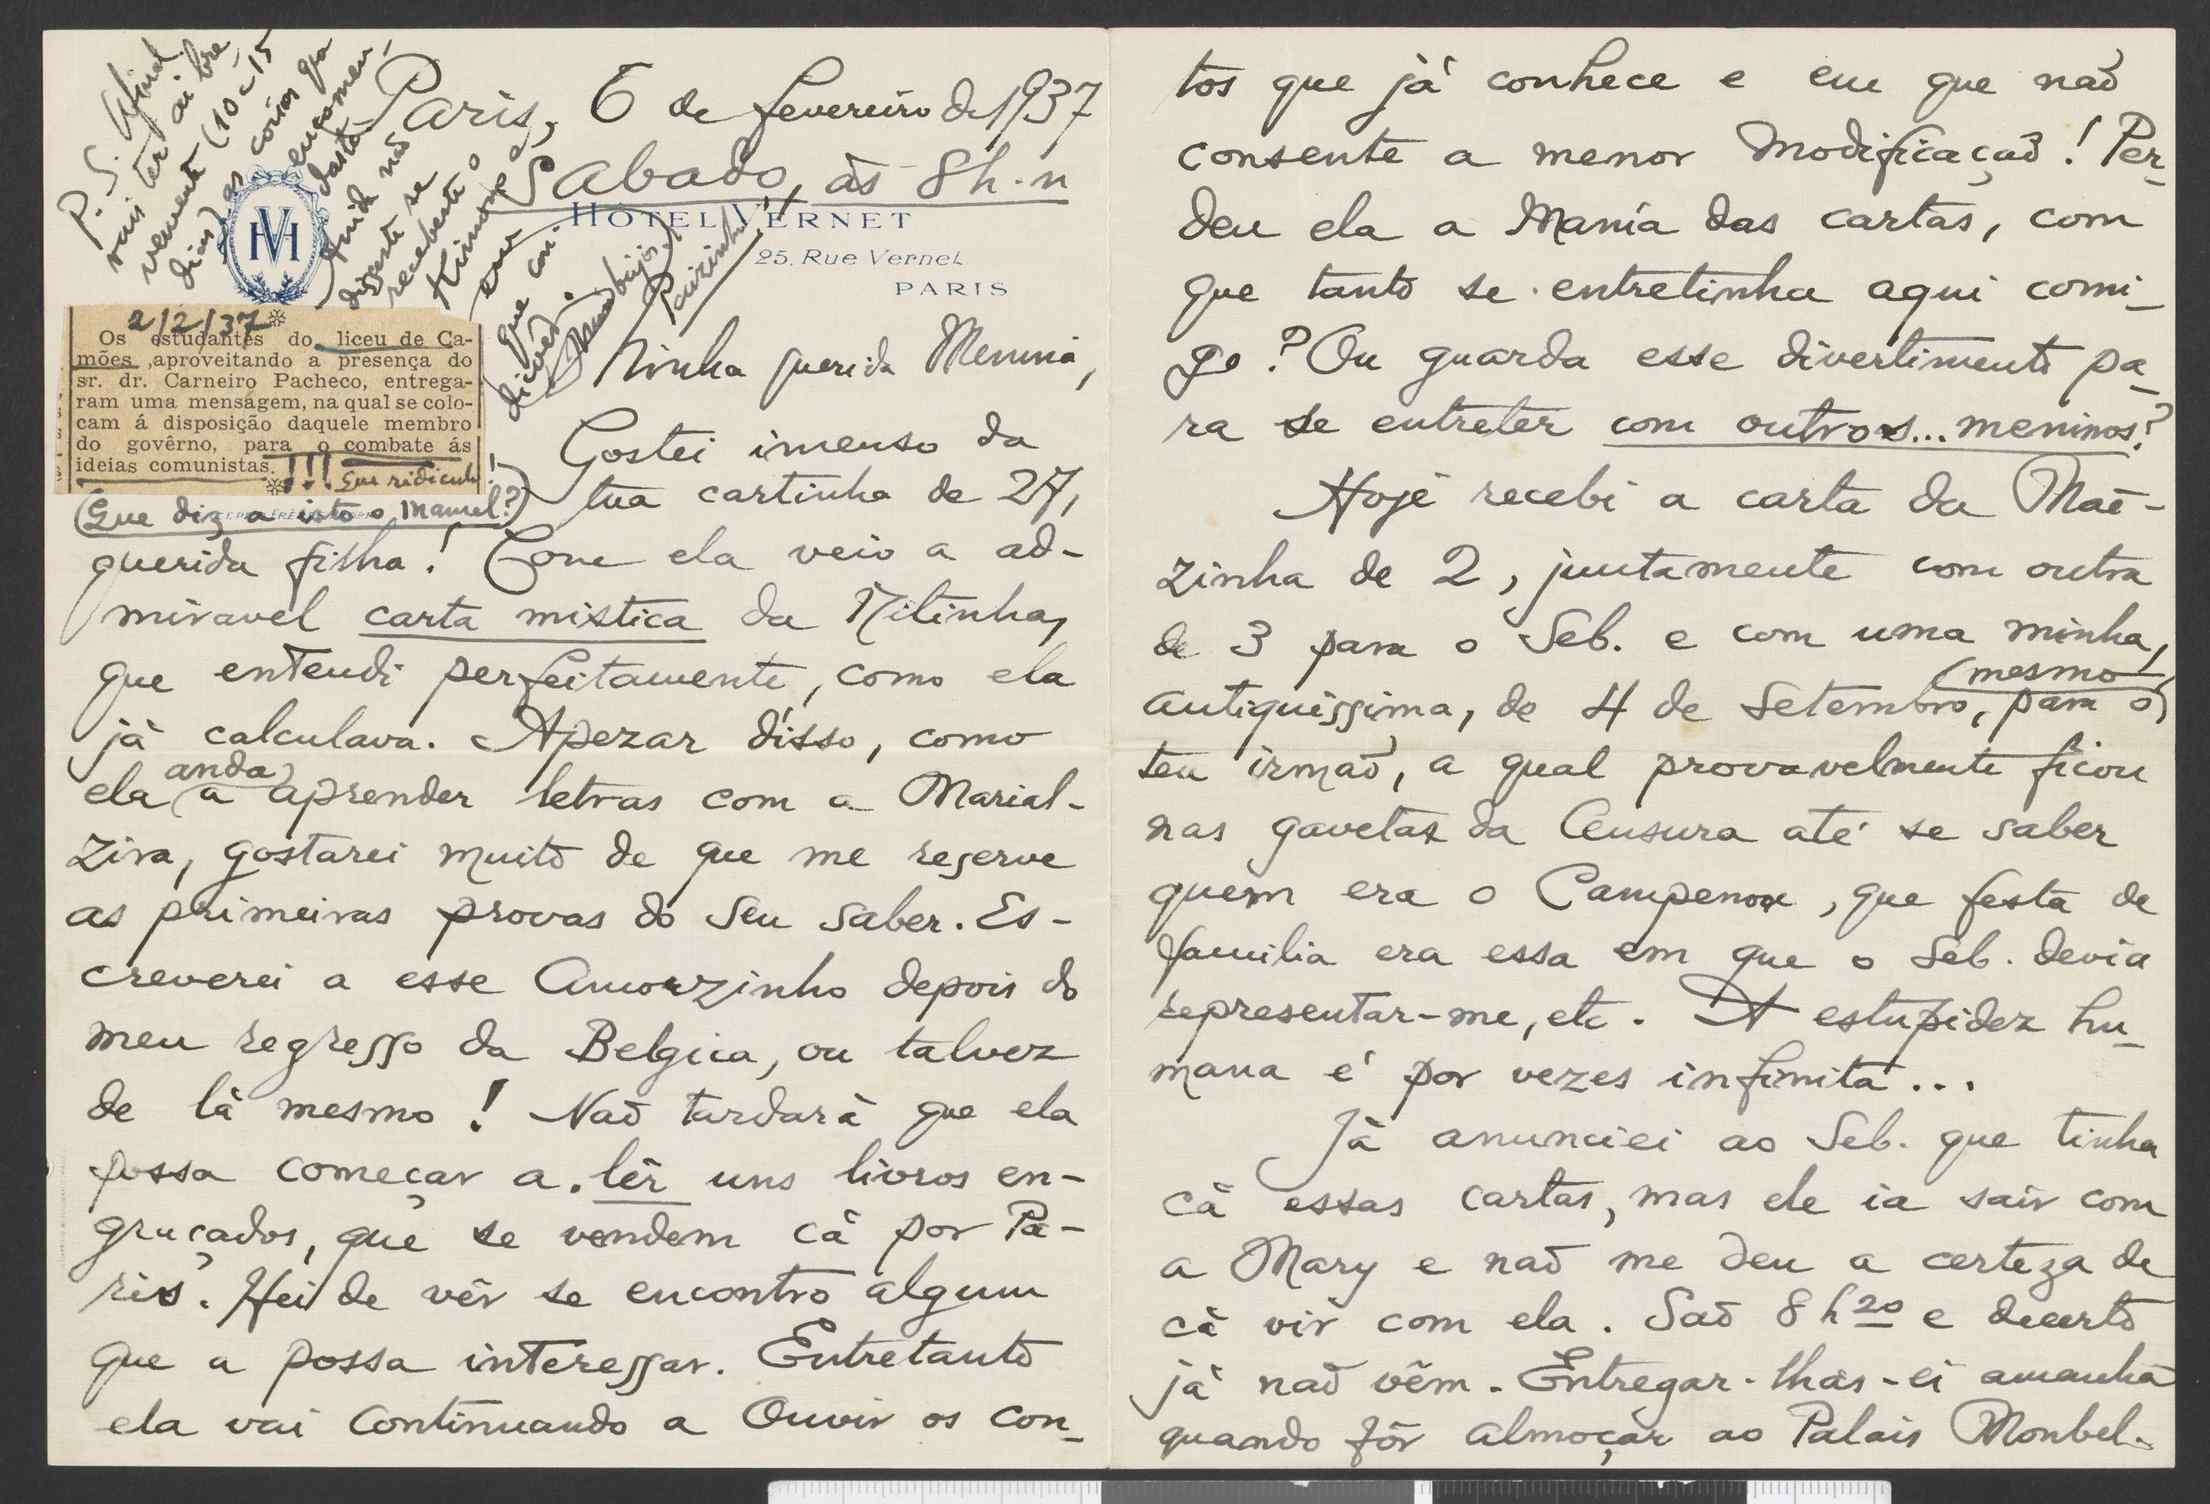 P.S. Afinal
vais ter aí bre
vemente (10 a 15
dias) as coisas que
encomen-
daste
Ainda não
disseste se
recebeste o
Kimono e
que con-
(que
dizes)
beijos
Paizinho
Paris, 6 de fevereiro de 1937
Sabado, às 8h. n
HÔTEL VERNET
25, Rue Vernet
PARIS
HV
2/2/37
Os estudantes do liceu de Ca-
mões ,aproveitando a presença do
sr. dr. Carneiro Pacheco, entrega-
ram uma mensagem, na qual se colo-
cam á disposição daquele membro
do govêrno, para o combate ás
ideias comunistas. !!! Que ridiculo!
(Que diz a isto o Manuel?)
Minha querida Menina,
Gostei imenso da
tua cartinha de 27,
querida filha! Com ela veio a ad-
miravel carta mistica da Nitinha,
que entendi perfeitamente, como ela
já calculava. Apezar disso, como
ela anda a aprender letras com a Marial-
zira, gostarei muito de que me reserve
as primeiras provas do seu saber. Es-
creverei a esse Amorzinho depois do
meu regresso da Belgica, ou talvez
de lá mesmo! Naõ tardará que ela
possa começar a lêr uns livros en-
graçados, que se vendem cá por Pa-
ris. Hei de vêr se encontro algum
que a possa interessar. Entretanto
ela vai continuando a ouvir os con-
tos que já conhece e em que naõ
consente a menor modificaçaõ! Per-
deu ela a mania das cartas, com
que tanto se entretinha aqui comi-
go? Ou guarda esse divertimento pa-
ra se entreter com outros... meninos?
Hoje recebi a carta da Maẽ-
zinha de 2, juntamente com outra
de 3 para o Seb. e com uma minha,
antiquissima, de 4 de Setembro, (mesmo!) para o
teu irmaõ, a qual provavelmente ficou
nas gavetas da Censura até se saber
quem era o Campenon, que festa de
familia era essa em que o Seb. devia
representar-me, etc. A estupidez hu-
mana é por vezes infinita...
Já anunciei ao Seb. que tinha
cá essas cartas, mas ele ia sair com
a Mary e naõ me deu a certeza de
cá vir com ela. Saõ 8 h 20 e decerto
já naõ vêm. Entregar-lhas-ei amanhã
quando fôr almoçar ao Palais Monbel-